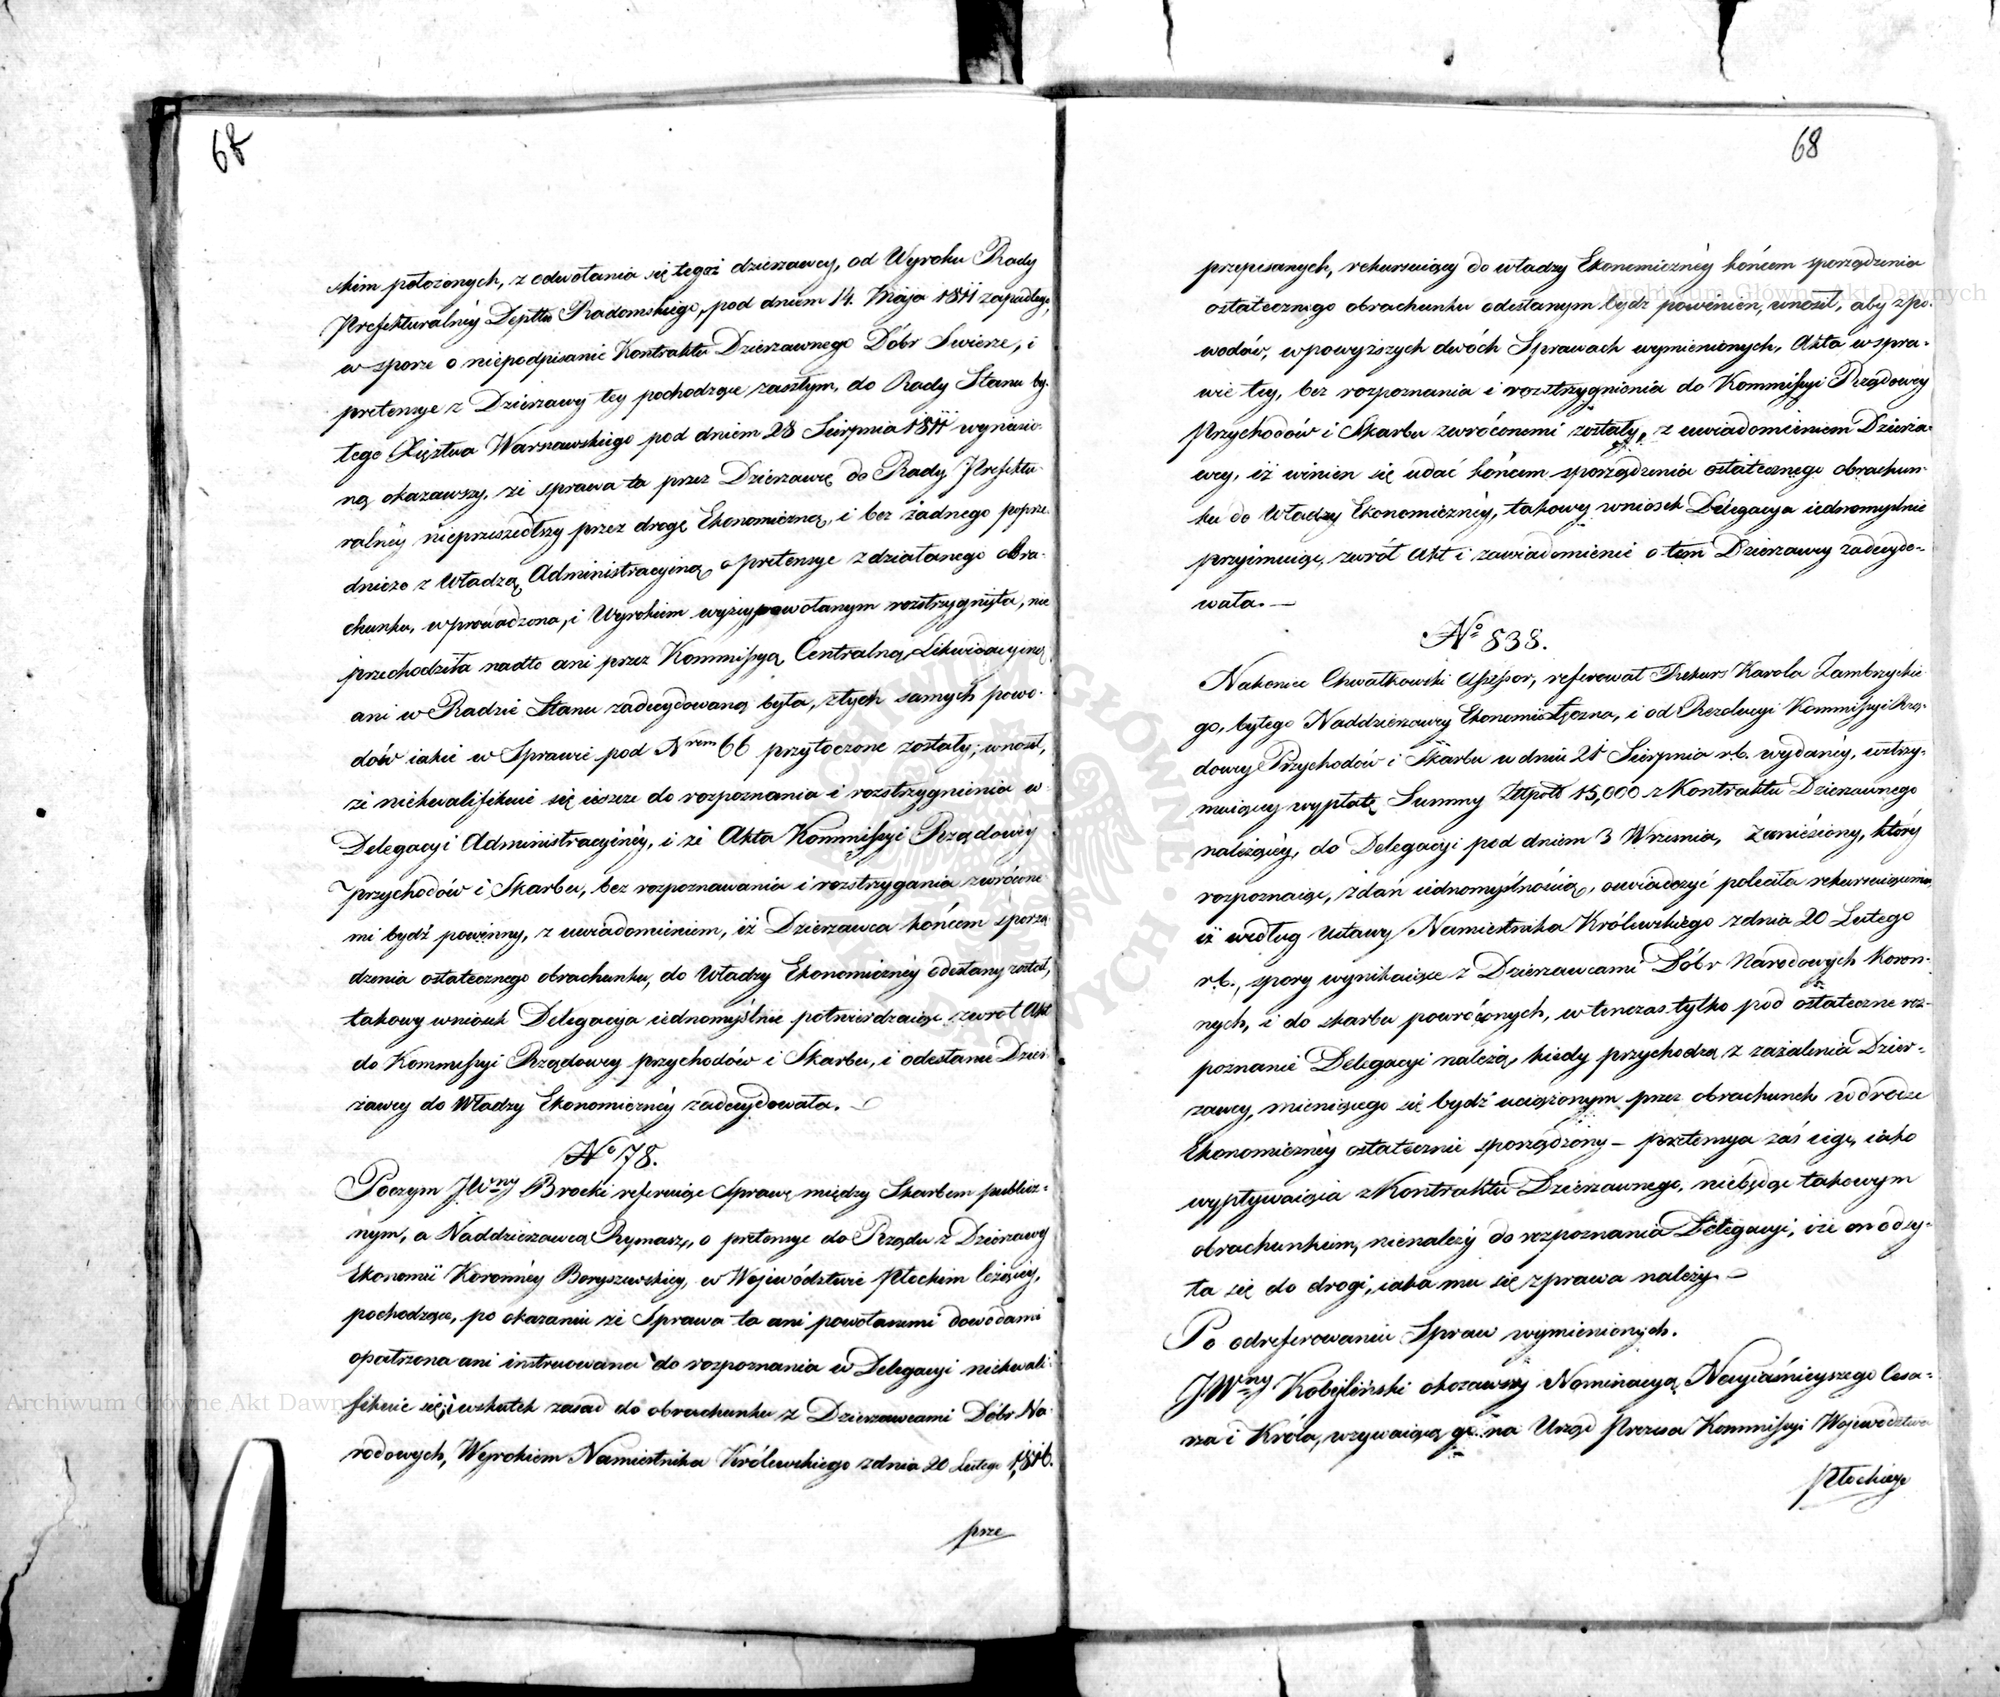 68
skim położonych, z odwołania się tegoż dzierzawcy, od Wyroku Rady
Prefekturalnéy Depttu Radomskiego, pod dniem 14. Maja 1811 zapadłego,
w sporze o niepodpisanie Kontraktu Dzierzawnego Dóbr Swierze, i
pretensye z Dzierzawy tey pochodzące zaszłym, do Rady Stanu by-
łego Xięztwa Warszawskiego pod dniem 28 Sierpnia 1811 wyniesio-
ną okazawszy, że sprawa ta przez Dzierzawcę do Rady Prefektu-
ralnéy nieprzeszedłszy przez drogę Ekonomiczną, i bez żadnego poprze-
dniczo z Władzą Administracyiną o pretensye zdziałanego obra-
chunku, wprowadzona, i Wyrokiem wyżéy powołanym rozstrzygnięta, nie
przechodziła nadto ani przez Kommissyą Centralną Likwidacyiną
ani w Radzie Stanu zadecydowaną była, z tych samych powo-
dów iakie w Sprawie pod Nrem 66 przytoczone zostały; wnosił,
że niekwalifikuie się ieszcze do rozpoznania i rozstrzygnienia w
Delegacyi Administracyinéy, i że Akta Kommissyi Rządowéy
przychodów i Skarbu, bez rozpoznawania i rozstrzygania zwrócone-
mi bydź powinny, z uwiadomieniem, iż Dzierzawca końcem sporzą-
dzenia ostatecznego obrachunku, do Władzy Ekonomicznéy odesłany został,
takowy wniosek Delegacya iednomyślnie potwierdzaiąc zwrot Akt
do Kommissyi Rządowéy przychodów i Skarbu, i odesłanie Dzier-
żawcy do Władzy Ekonomicznéy zadecydowała. —
No 78.
Poczym JWny Brocki referuiąc Sprawę między Skarbem public-
nym, a Naddzierzawcą Rymasz, o pretensye do Rządu z Dzierzawy
Ekonomii Koronnéy Boryszewskiey, w Wojewódstwie Płockim leżącéy,
pochodzące, po okazaniu że Sprawa ta ani powołanemi dowodami
opatrzona ani instruowana do rozpoznania w Delegacyi niekwali-
fikuie się, i wskutek zasad do obrachunku z Dzierzawcami Dóbr Na-
rodowych, Wyrokiem Namiestnika Królewskiego z dnia 20 Lutego 1816.
prze
68
przepisanych, rekursuiący do władzy Ekonomicznéy końcem sporządzenia
ostatecznego obrachunku odesłanym bydź powinien, wnosił, aby z po-
wodów, w powyższych dwóch Sprawach wymienionych, Akta w spra-
wie tey, bez rozpoznania i rozstrzygnienia do Kommissyi Rządowéy
Przychodów i Skarbu zwróconemi zostały, z uwiadomieniem Dzierża-
wcy, iż winien się udać końcem sporządzenia ostatecznego obrachun-
ku do Władzy Ekonomicznéy, takowy wniosek Delegacya iednomyślnie
przyimuiąc, zwrót Akt i zawiadomienie o tem Dzierzawcy zadecydo-
wała. —
No 838.
Nakoniec Chwałkowski Assessor, referował Rekurs Karola Zambrzyckie-
go, byłego Naddzierzawcy Ekonomii Łęczna, i od Rezolucyi Kommissyi Rzą-
dowey Przychodów i Skarbu w dniu 21 Sierpnia r.b. wydanéy, wstrzy-
muiącey wypłatę Summy Złtpolk 15,000 z Kontraktu Dzierzawnego
należącéy, do Delegacyi pod dniem 3 Wrzesnia, zaniesiony, który
rozpoznaiąc, zdań iednomyślnością, oswiadczyć poleciła rekursuiącemu
iż według Ustawy Namiestnika Królewskiego z dnia 20 Lutego
r.b., spory wynikaiące z Dzierzawcami Dóbr Narodowych Koron-
nych, i do skarbu powróconych, w tenczas tylko pod ostateczne roz-
poznanie Delegacyi należą, kiedy przychodzą z zażalenia Dzier-
zawcy, mieniącego się bydź uciążonym przez obrachunek w drodze
Ekonomicznéy ostatecznie sporządzony – pretensya zaś iego, iako
wypływaiąca z Kontraktu Dzierzawnego, niebędąc takowym
obrachunkiem, nienależy do rozpoznania Delegacyi, i że on odsy-
ła się do drogi, iaka mu się z prawa należy. —
Po odreferowaniu Spraw wymienionych.
JWny Kobyliński okazawszy Nominacyą Nayiaśnieyszego Cesa-
rza i Króla, wzywaiącą go na Urząd Prezesa Kommissyi Wojewodztwa
Płockiego
Archiwum Główne Akt Dawnych
Archiwum Główne Akt Dawnych